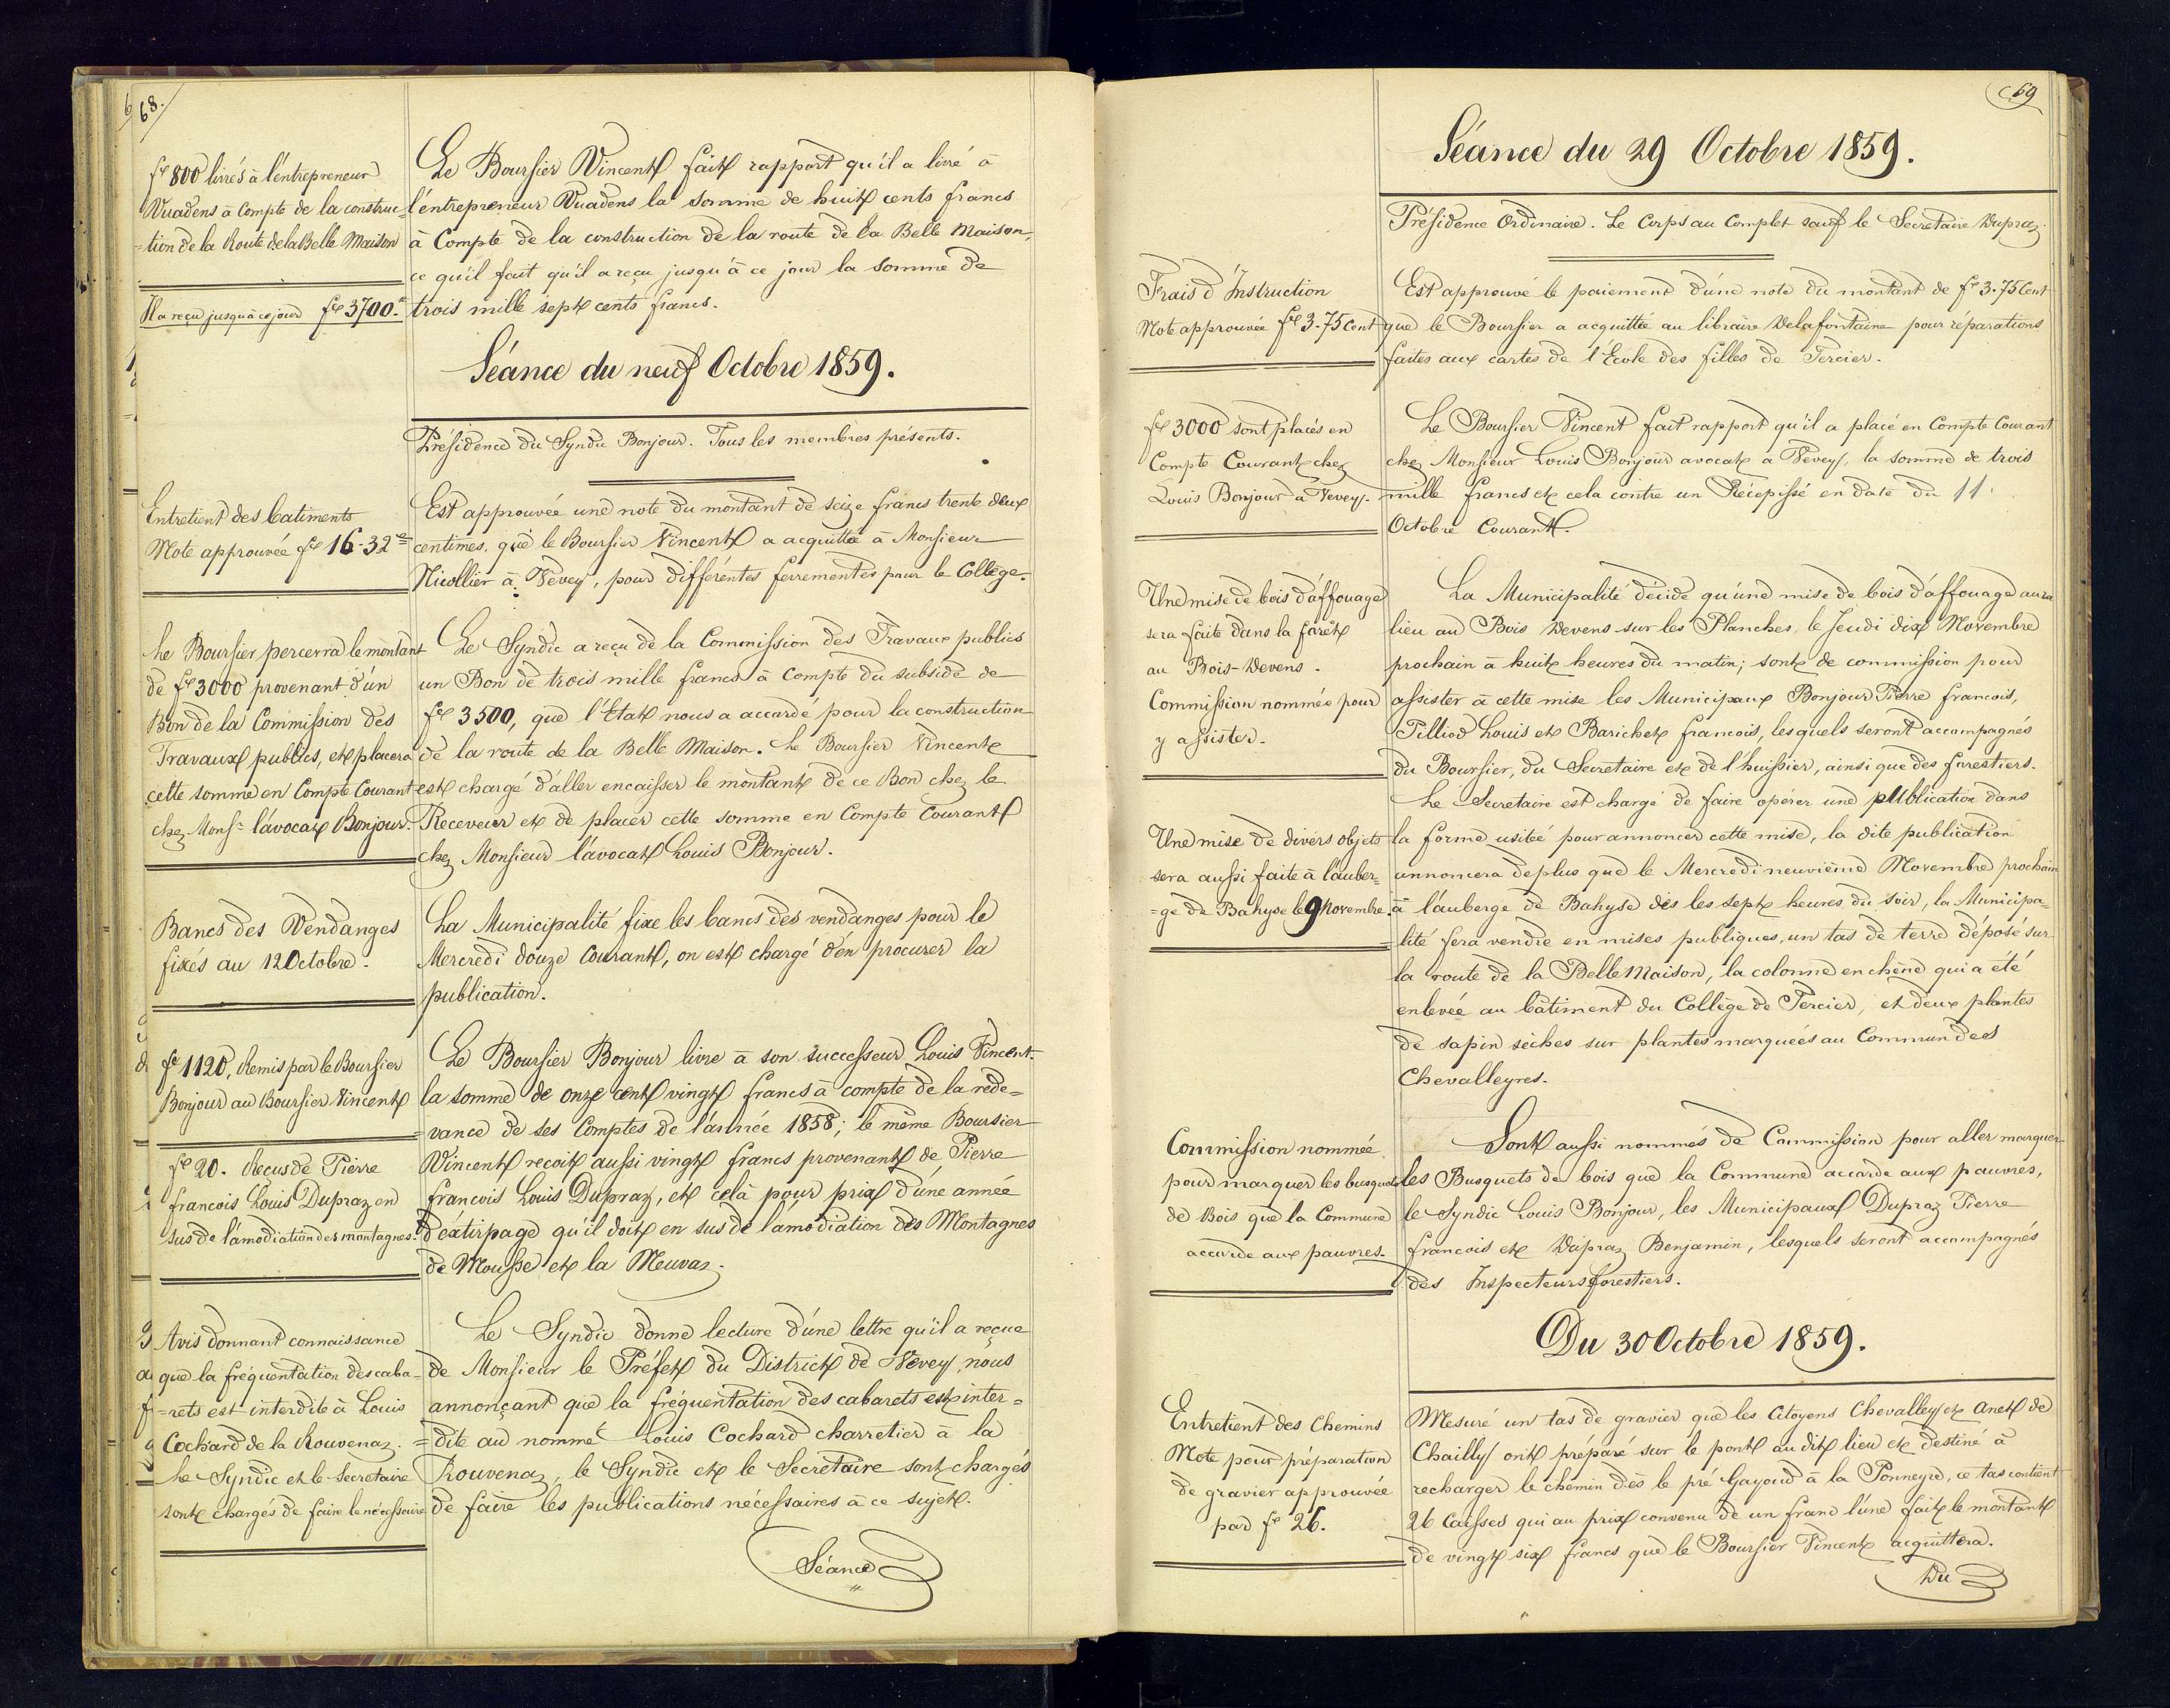 68.
fs 800 livrés à l'entrepreneur
Vuadens à Compte de la construc-
=tion de la Route de la Belle Maison
Il a reçu jusqu'à ce jour fs 3700.
Le Boursier Vincent fait rapport qu'il a livré à
l'entrepreneur Vuadens la somme de huit cents francs
à Compte de la construction de la route de la Belle Maison,
ce qu'il fait qu'il a reçu jusqu'à ce jour la somme de
trois mille sept cents francs.
Séance du neuf Octobre 1859.
Présidence du Syndic Bonjour. Tous les membres présents.
Entretient des batiments
Note approuvée fs 16-32
Est approuvée une note du montant de seize francs trente deux
centimes, que le Boursier Vincent a acquittée à Monsieur
Nicollier à Vevey, pour différentes ferrementes pour le Collège.
Le Boursier percevra le montant
de fs 3000 provenant d'un
Bon de la Commission des
Travaux publics, et placera
cette somme en Compte Courant
chez Monsr l'avocat Bonjour.
Le Syndic a reçu de la Commission des Travaux publics
un Bon de trois mille francs à Compte du subside de
fs 3500, que l'Etat nous a accordé pour la construction
de la route de la Belle Maison. Le Boursier Vincent
est chargé d'aller encaisser le montant de ce Bon chez le
Receveur et de placer cette somme en Compte Courant
chez Monsieur l'avocat Louis Bonjour.
Bancs des Vendanges
fixés au 12 Octobre.
La Municipalité fixe les bancs des vendanges pour le
Mercredi douze Courant, on est chargé d'en procurer la
publication.
fs 1120, Remis par le Boursier
Bonjour au Boursier Vincent
Le Boursier Bonjour livre à son successeur Louis Vincent
la somme de onze cent vingt francs à compte de la rede=
=vance de ses Comptes de l'année 1858; le même Boursier
Vincent recoit aussi vingt francs provenant de Pierre
francois Louis Dupraz, et celà pour prix d'une année
d'extirpage qu'il doit en sus de l'amodiation des Montagnes
de Mousse et la Meuvaz.
fs 20. Reçus de Pierre
francois Louis Dupraz en
sus de l'amodiation des montagnes.
Avis donnant connaissance
que la fréquentation des caba=
=rets est interdite à Louis
Cochard de la Rouvenaz.
Le Syndic et le Secretaire
sont chargés de faire le nécessaire
Le Syndic donne lecture d'une lettre qu'il a reçue
de Monsieur le Préfet du District de Vevey, nous
annonçant que la fréquentation des cabarets est inter=
=dite au nommé Louis Cochard charretier à la
Rouvenaz, le Syndic et le Secretaire sont chargés
de faire les publications nécessaires à ce sujet.
Séance
69
Séance du 29 Octobre 1859.
Présidence Ordinaire. Le Corps au Complet sauf le Secretaire Dupraz.
Frais d'Instruction
Note approuvée fs 3.75 Cent
Est approuvé le paiement d'une note du montant de fs 3.75 Cent
que le Boursier a acquittée au libraire Delafontaine pour réparations
faites aux cartes de l'Ecole des filles de Tercier.
fs 3000 sont placés en
Compte Courant chez
Louis Bonjour à Vevey.
Le Boursier Vincent fait rapport qu'il a placé en Compte Courant
chez Monsieur Louis Bonjour avocat à Vevey, la somme de trois
mille francs et cela contre un Récepissé en date du 11
Octobre Courant.
Une mise de bois d'affouage
sera faite dans la forêt
au Bois-Devens.
Commission nommée pour
y assister.
La Municipalité décide qu'une mise de bois d'affouage aura
lieu au Bois Devens sur les Planches, le Jeudi dix Novembre
prochain à huit heures du matin; sont de commission pour
assister à cette mise les Municipaux Bonjour Pierre francois,
Pilliod Louis et Barichet francois, lesquels seront accompagnés
du Boursier, du Secretaire et de l'huissier, ainsi que des forestiers.
Le Secretaire est chargé de faire opérer une publication dans
la forme usitée pour annoncer cette mise, la dite publication
annoncera de plus que le Mercredi neuvième Novembre prochain
à l'auberge de Bahyse dès les sept heures du soir, la Municipa=
=lité fera vendre en mises publiques, un tas de terre déposé sur
la route de la Belle Maison, la colonne en chêne qui a été
enlevée au bâtiment du Collège de Tercier, et deux plantes
de sapin sèches sur plantes marquées au Commun des
Chevalleyres.
Une mise de divers objets
sera aussi faite à l'auber=
=ge de Bahyse le 9 Novembre.
Commission nommée
pour marquer les busquets
de Bois que la Commune
accorde aux pauvres.
Sont aussi nommés de Commission pour aller marquer
les Busquets de bois que la Commune accorde aux pauvres,
le Syndic Louis Bonjour, les Municipaux Dupraz Pierre
francois et Dupraz Benjamin, lesquels seront accompagnés
des Inspecteurs forestiers.
Du 30 Octobre 1859.
Entretient des Chemins
Note pour préparation
de gravier approuvée
par fs 26.
Mesuré un tas de gravier que les Citoyens Chevalley et Anet de
Chailly ont préparé sur le pont au dit lieu et destiné à
recharger le chemin dès le pré Gayoud à la Ponneyre, ce tas contient
26 Caisses qui au prix convenu de un franc l'une fait le montant
de vingt six francs que le Boursier Vincent acquittera.
Du